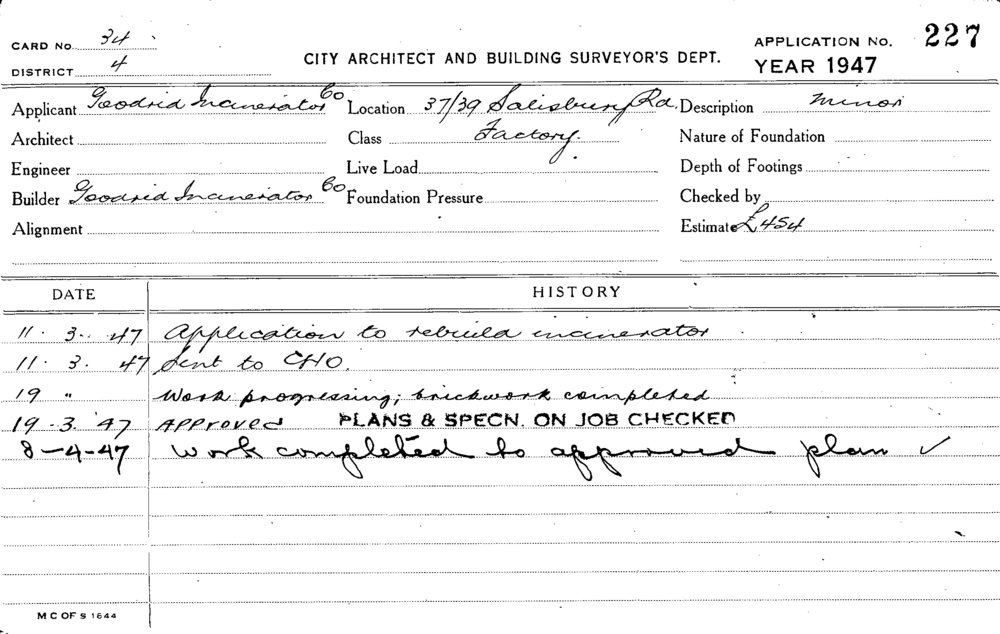 CARD No. 34
DISTRICT 4
CITY ARCHITECT AND BUILDING SURVEYOR'S DEPT.
APPLICATION No. 227
YEAR 1947
Applicant Goodrid Incinerator Co Location 37/39 Salisbury Rd. Description Minor
Architect Class Factory. Nature of Foundation
Engineer Live Load Depth of Footings
Builder Goodrid Incinerator Co Foundation Pressure Checked by
Alignment Estimate £454
DATE HISTORY
11. 3. 47 Application to rebuild incinerator
11. 3. 47 Sent to CHO.
19 " Work progressing; brickwork completed
19.3.'47 APPROVED PLANS & SPECN. ON JOB CHECKED
8-4-47 Work completed to approved plan ✓
M C OF S 1644